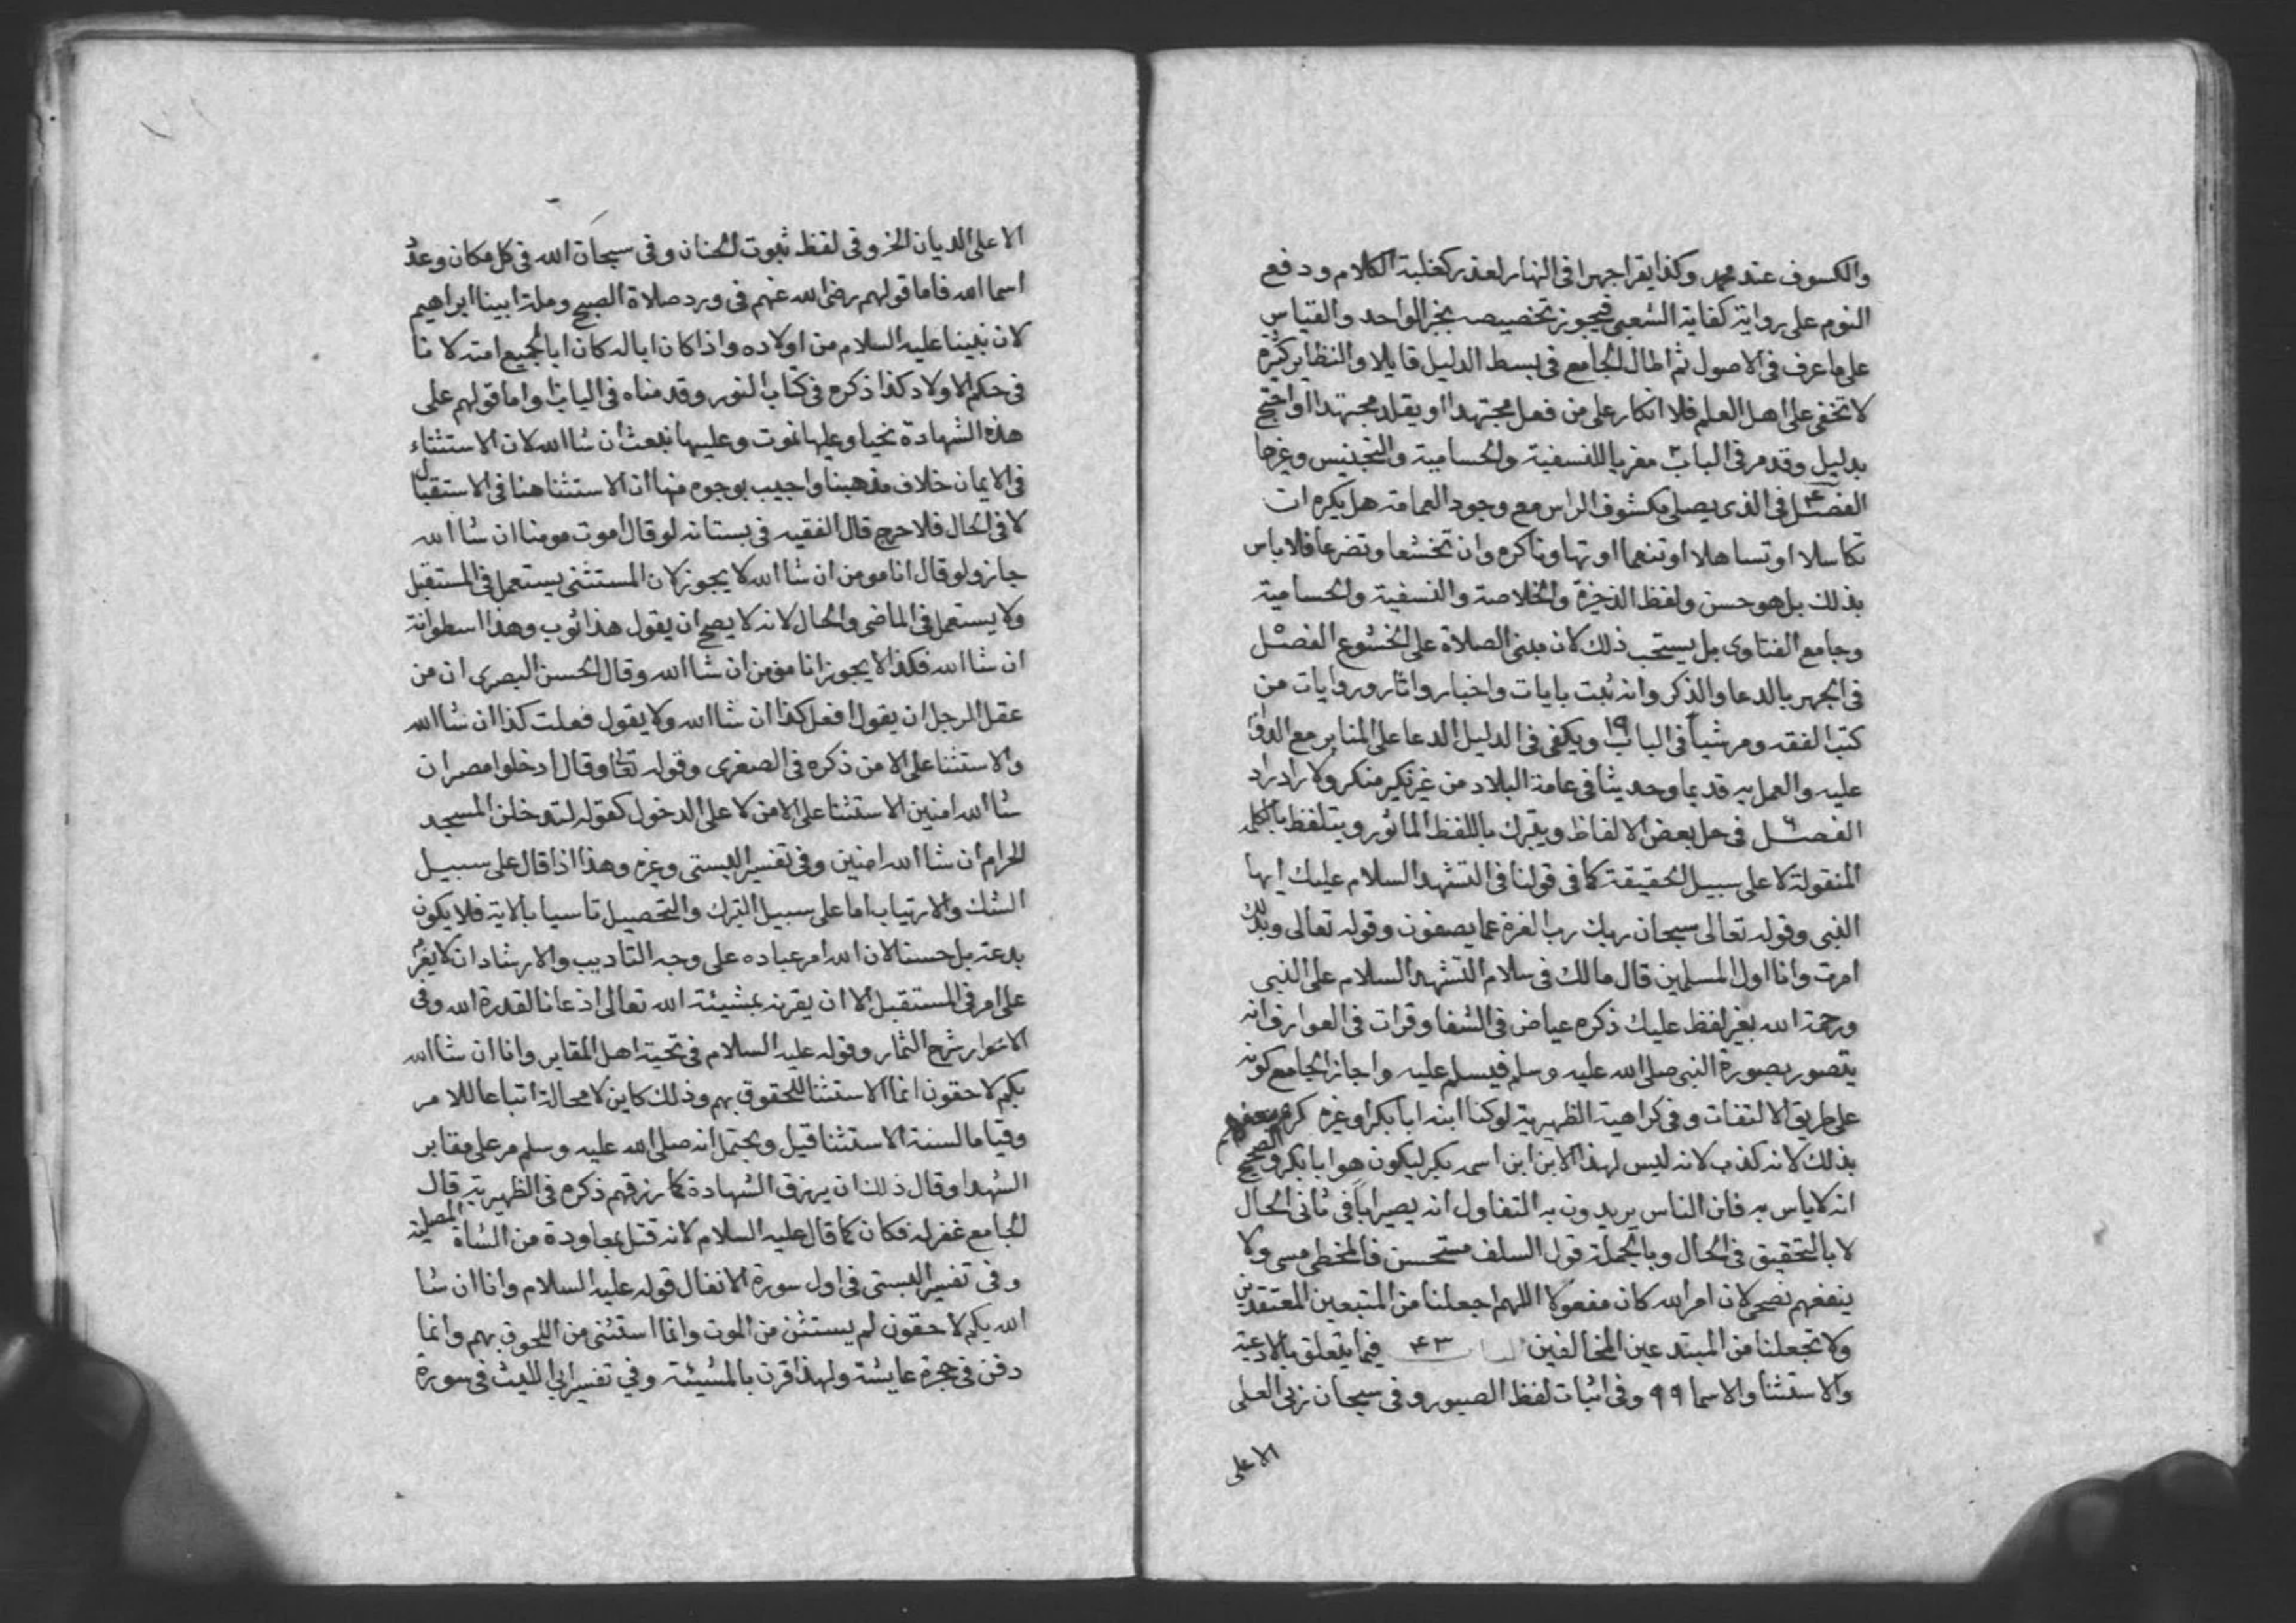 والكسوف عند محمد وكذا يقرا جهرا فى النهار لعذر كغلبة الكلام ودفع
النوم على رواية كفاية الشعبى فيجوز تخصيصه بخبر الواحد والقياس
على ما عرف فى الاصول ثم اطال الجامع فى بسط الدليل قايلا والنظاير كثيرة
لا تخفى على اهل العلم فلا انكار على من فعل مجتهدا او يقلد مجتهدا او احتج
بدليل وقد مر فى الباب معزيا للنسفية والحسامية والتجنيس وغيرها
الفصل فى الذى يصلى مكشوف الراس مع وجود العمامة هل يكره ان
تكاسلا او تساهلا او تنعما او تهاونا كره وان تخشعا وتضرعا فلا باس
بذلك بل هو حسن ولفظ الذخيرة والخلاصة والنسفية والحسامية
وجامع الفتاوى بل يستحب ذلك لان مبنى الصلاة على الخشوع الفصل
فى الجهر بالدعا والذكر وانه ثبت بايات واخبار واثار وروايات من
كتب الفقه ومر شيأ فى الباب ١٩ ويكفى فى الدليل الدعا على المنابر مع
عليه والعمل به قديما وحديثا فى عامة البلاد من غير نكير منكر ولا راد راد
الفصل فى حل بعض الالفاظ ويتبرك باللفظ الماثور ويتلفظ بالكلمة
المنقولة لا على سبيل الحقيقة كما فى قولنا فى التشهد السلام عليك ايها
النبى وقوله تعالى سبحان ربك رب العزة عما يصفون وقوله تعالى وبذلك
امرت وانا اول المسلمين قال مالك فى سلام التشهد السلام على النبى
ورحمة الله بغير لفظ عليك ذكره عياض فى الشفا وقرات فى العوارف انه
يتصور بصورة النبى صلى الله عليه وسلم فيسلم عليه واجاز الجامع كونه
على طريق الالتفات وفى كراهية الظهيرية لو كنا ابنه ابا بكر او غيره كره بعضهم
بذلك لانه كذب لانه ليس لهذا الابن ابن اسمه بكر ليكون هو ابا بكر والصحيح
انه لا باس به فان الناس يريدون به التفاول انه يصير ابا فى ثانى الحال
لا بالتحقيق فى الحال وبالجملة قول السلف مستحسن فالمخطى مسى ولا
ينفعهم نصحى لان امر الله كان مفعولا اللهم اجعلنا من المتبعين المعتقدين
ولا تجعلنا من المبتدعين المخالفين الباب ٤٣ فيما يتعلق بالادعية
والاستثنا والاسما ٩٩ وفى اثبات لفظ الصبور وفى سبحان ربى العلى
الاعلى
الاعلى الديان الخ وفى لفظ ثبوت الحنان وفى سبحان الله فى كل مكان وعدد
اسما الله فاما قولهم رضى الله عنهم فى ورد صلاة الصبح وملة ابينا ابراهيم
لان نبينا عليه السلام من اولاده واذا كان ابا له كان ابا لجميع امته لانا
فى حكم الاولاد كذا ذكره فى كتاب النور وقدمناه فى الباب واما قولهم على
هذه الشهادة نحيا وعليها نموت وعليها نبعث ان شا الله لان الاستثناء
فى الايمان خلاف مذهبنا واجيب بوجوه منها ان الاستثنا هنا فى الاستقبال
لا فى الحال فلا حرج قال الفقيه فى بستانه لو قال اموت مومنا ان شا الله
جاز ولو قال انا مومن ان شا الله لا يجوز لان المستثنى يستعمل فى المستقبل
ولا يستعمل فى الماضى والحال لانه لا يصح ان يقول هذا ثوب وهذا اسطوانة
ان شا الله فكذا لا يجوز انا مومن ان شا الله وقال الحسن البصرى ان من
عقل الرجل ان يقول افعل كذا ان شا الله ولا يقول فعلت كذا ان شا الله
والاستثنا على الامن ذكره فى الصغرى وقوله تعالى وقال ادخلوا مصر ان
شا الله امنين الاستثنا على الامن لا على الدخول كقوله لتدخلن المسجد
الحرام ان شا الله امنين وفى تفسير البستى وغيره وهذا اذا قال على سبيل
الشك والارتياب اما على سبيل التبرك والتحصيل تاسيا بالاية فلا يكون
بدعة بل حسنا لان الله امر عباده على وجه التاديب والارشاد ان لا
على امر فى المستقبل الا ان يقرنه بمشيئة الله تعالى اذعانا لقدرة الله وفى
الانوار شرح الثمار وقوله عليه السلام فى تحية اهل المقابر وانا ان شا الله
بكم لاحقون انما الاستثنا للحقوق بهم وذلك كاين لا محالة اتباعا للامر
وقياما لسنة الاستثنا قيل ويحتمل انه صلى الله عليه وسلم مر على مقابر
الشهدا وقال ذلك ان يرزق الشهادة كما رزقهم ذكره فى الظهيرية قال
الجامع غفر له فكان كما قال عليه السلام لانه قتل بمعاودة من الشاة المصلية
وفى تفسير البستى فى اول سورة الانفال قوله عليه السلام وانا ان شا
الله بكم لاحقون لم يستثن من الموت وانما استثنى من اللحوق بهم وانما
دفن فى حجرة عايشة ولهذا قرن بالمشيئة وفي تفسير ابى الليث فى سورة